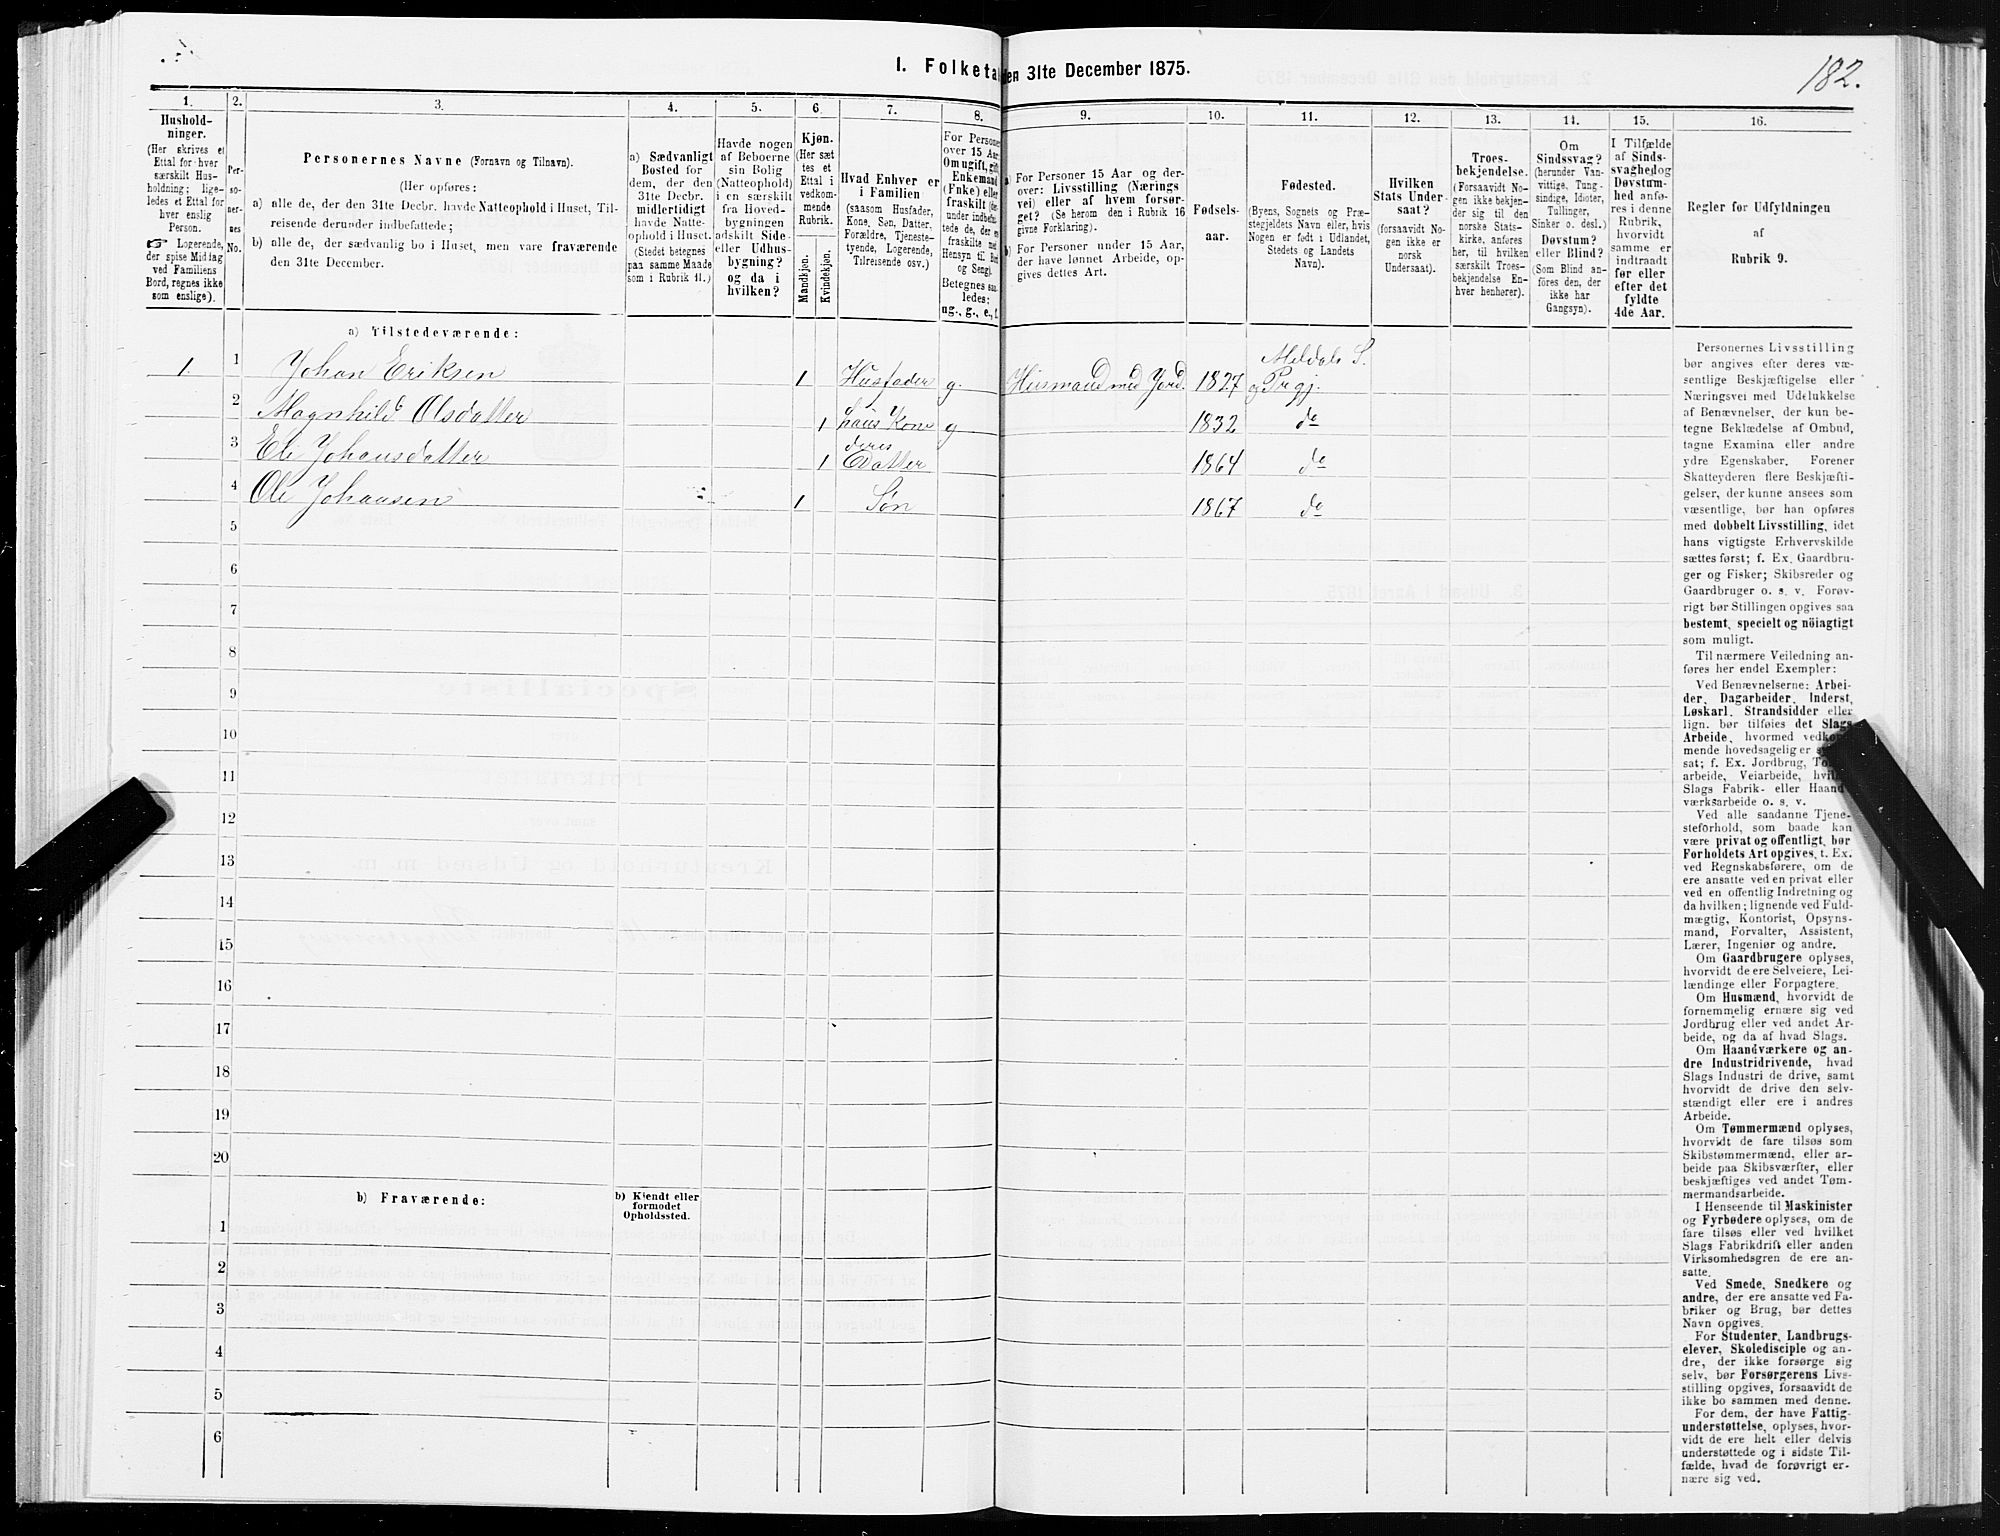 I. Folketa
den 31te December 1875.
182.
1.
2.
3.
4.
5.
6.
7.
8.
9.
10.
11.
12.
13.
14.
15.
16.
Hushold-
ninger.
(Her skrives et
Ettal for hver
særskilt Hus-
holdning; lige-
ledes et Ettal for
hver enslig
Person.
☞ Logerende,
der spise Middag
ved Familiens
Bord, regnes ikke
som enslige).
Per-
so-
ner-
nes
No.
Personernes Navne (Fornavn og Tilnavn).
(Her opføres:
a) alle de, der den 31te Decbr. havde Natteophold i Huset, Til-
reisende derunder indbefattede;
b) alle de, der sædvanlig bo i Huset, men vare fraværende
den 31te December.
a) Sædvanligt
Bosted for
dem, der den
31te Decbr.
midlertidigt
havde Natte-
ophold i Huset.
(Stedet betegnes
paa samme Maade
som i Rubrik 11.)
Havde nogen
af Beboerne
sin Bolig
(Natteophold)
i en særskilt
fra Hoved-
bygningen
adskilt Side-
eller Udhus-
bygning?
og da i
hvilken?
Kjøn.
(Her sæt
tes et
Ettal i
vedkom-
mende
Rubrik.
Mandkjøn.
Kvindekjøn.
Hvad Enhver er
i Familien
(saasom Husfader,
Kone, Søn, Datter,
Forældre, Tjeneste-
tyende, Logerende,
Tilreisende osv.)
For Persone
over 15 Aar
Om ugift, gift
Enkemand
(Enke) eller
fraskilt (de
under indbefat
tede de, der e
fraskilte med
Hensyn til Bord
og Seng).
Betegnes saa-
ledes:
ug., g., e., f.
a) For Personer 15 Aar og der-
over: Livsstilling (Nærings
vei) eller af hvem forsør-
get? (Se herom den i Rubrik 16
givne Forklaring).
b) For Personer under 15 Aar,
der have lønnet Arbeide, op-
gives dettes Art.
Fødsels-
aar.
Fødested.
(Byens, Sognets og Præ-
stegjeldets Navn eller, hvis
Nogen er født i Udlandet,
Stedets og Landets
Navn).
Hvilken
Stats Under-
saat?
(forsaavidt No-
gen ikke er
norsk
Undersaat).
Troes-
bekjendelse.
(Forsaavidt No-
gen ikke bekjen-
der sig til den
norske Stats-
kirke, anføres
her, til hvilken
særskilt Troes-
bekjendelse En-
hver henhører).
Om
Sindssvag?
(herunder Van-
vittige, Tung-
sindige, Idioter,
Tullinger,
Sinker o. desl.).
Døvstum?
eller Blind?
(Som Blind an-
føres den, der
ikke har
Gangsyn).
I Tilfælde
af Sinds-
svaghed og
Døvstum-
hed anfø-
res i denne
Rubrik,
hvorvidt
samme er
indtraadt
før eller
efter det
fyldte
4de Aar.
Regler før Udfyldningen
af
Rubrik 9.
a) Tilstedeværende:
1. 1 Johan Eriksen 1 Husfader g. Husmand med Jord. 1827 Meldals S. og Prgj.
2 Magnhild Olsdatter 1 hans Kone g 1832 do
3 Eli Johansdatter 1 deres Datter 1864 do
4 Ole Johansen 1 Søn 1867 do
5
6
7
8
9
10
11
12
13
14
15
16
17
18
19
20
b) Fraværende:
b) Kjendt eller
formodet
Opholdssted.
1
2
3
4
5
6
Personernes Livsstilling
bør angives efter deres væ-
sentlige Beskjæftigelse eller
Næringsvei med Udelukkelse
af Benævnelser, der kun be-
tegne Beklædelse af Ombud,
tagne Examina eller andre
ydre Egenskaber. Forener
Skatteyderen flere Beskjæfti-
gelser, der kunne ansees som
væsentlige, bør han opføres
med dobbelt Livsstilling, idet
hans vigtigste Erhvervskilde
sættes først; f. Ex. Gaardbru-
ger og Fisker; Skibsreder og
Gaardbruger o. s. v. Forøv-
rigt bør Stillingen opgives saa
bestemt, specielt og nöiagtigt
som muligt.
Til nærmere Veiledning an-
føres her endel Exempler:
Ved Benævnelserne: Arbei-
der, Dagarbeider, Inderst,
Løskarl, Strandsidder eller
lign. bør tilføies det Slags
Arbeide, hvormed vedkom-
mende hovedsagelig er
sat; f. Ex. Jordbrug,
arbeide, Veiarbeide,
Slags Fabrik- eller Haand-
værksarbeide o. s. v.
Ved alle saadanne Tjene-
steforhold, som baade kan
være privat og offentligt, bør
Forholdets Art opgives, t. Ex.
ved Regnskabsførere, om de
ere ansatte ved en privat eller
ved en offentlig Indretning og
da hvilken; lignende ved Fuld-
mægtig, Kontorist, Opsyns-
mand, Forvalter, Assistent,
Lærer, Ingeniør og andre.
Om Gaardbrugere oplyses,
hvorvidt de ere Selveiere, Lei-
lændinge eller Forpagtere.
Om Husmænd, hvorvidt de
fornemmelig ernære sig ved
Jordbrug eller ved andet Ar-
beide, og da af hvad Slags.
Om Haandværkere og an-
dre Industridrivende, hvad
Slags Industri de drive, samt
hvorvidt de drive den selv-
stændigt eller ere i andres
Arbeide.
Om Tømmermænd oplyses,
hvorvidt de fare tilsøs som
Skibstømmermænd, eller ar-
beide paa Skibsværfter, eller
beskjæftiges ved andet Tøm-
mermandsarbeide.
I Henseende til Maskinister
og Fyrbødere oplyses, om de
fare tilsøs eller ved hvilket
Slags Fabrikdrift eller anden
Virksomhedsgren de ere an-
satte.
Ved Smede, Snedkere og
andre, der ere ansatte ved Fa-
briker og Brug, bør dettes
Navn opgives.
For Studenter, Landbrugs-
elever, Skoledisciple og an-
dre, der ikke forsørge sig
selv, bør Forsørgerens Livs-
stilling opgives, forsaavidt de
ikke bo sammen med denne.
For dem, der have Fattig-
understøttelse, oplyses, hvor-
vidt de ere helt eller delvis
understøttede og i sidste Til-
fælde, hvad de forøvrigt er-
nære sig ved.